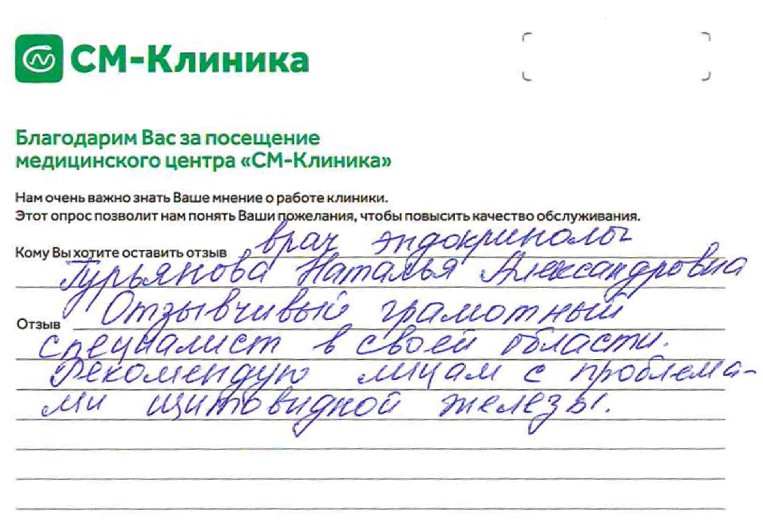 СМ-Клиника
Благодарим Вас за посещение
медицинского центра «СМ-Клиника»
Нам очень важно знать Ваше мнение о работе клиники.
Этот опрос позволит нам понять Ваши пожелания, чтобы повысить качество обслуживания.
Кому Вы хотите оставить отзыв врач эндокринолог
Гурьянова Наталья Александровна
Отзыв Отзывчивый грамотный
специалист в своей области.
Рекомендую лицам с проблема-
ми щитовидной железы.